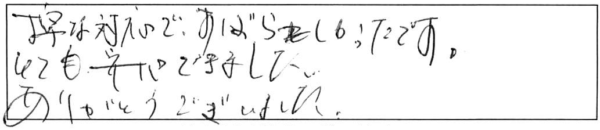 丁寧な対応で、すばらしかったです。
とても安心できました。
ありがとうございました。